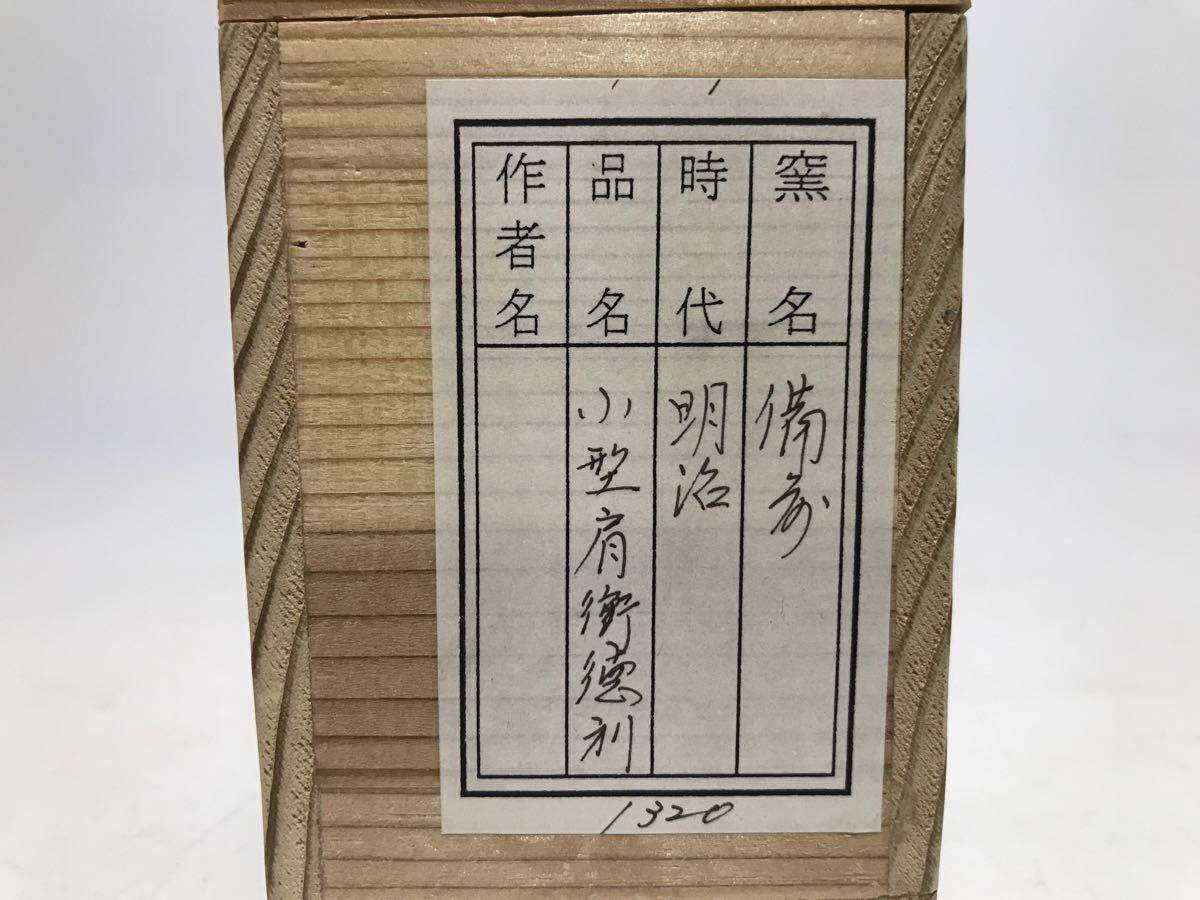 窯名 備前
時代 明治
品名 小型肩衝德利
作者名
1320